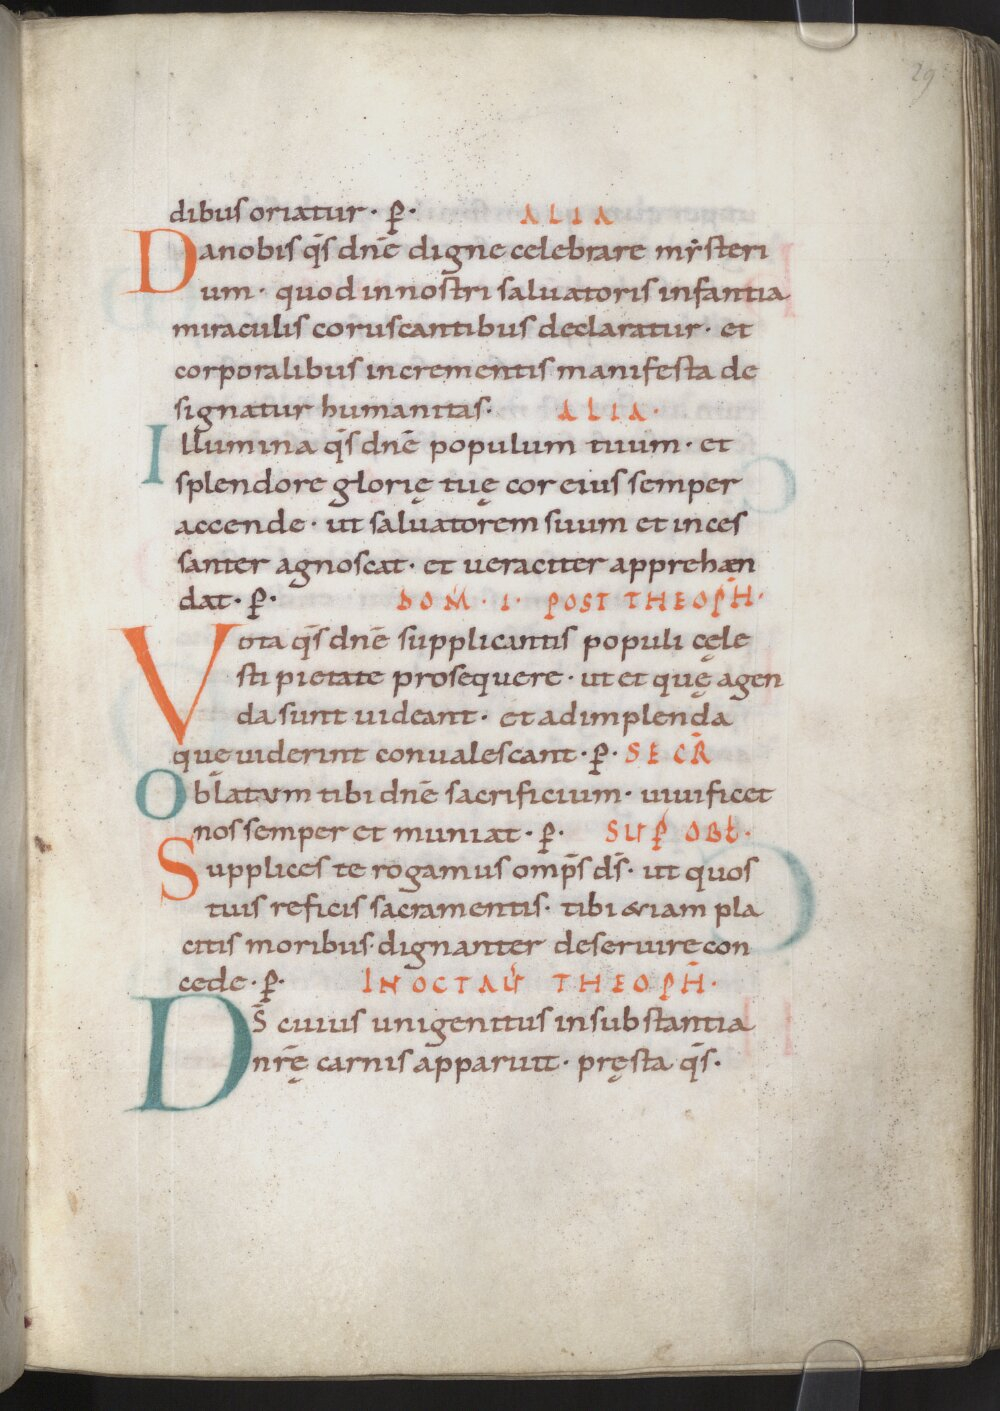 29
dibus oriatur · p̄ · ALIA
Da nobis q̄s dn̄e digne celebrare mẏsteri
um · quod in nostri saluatoris infantia
miraculis coruscantibus declaratur · et
corporalibus incrementis manifesta de
signatur humanitas · ALIA ·
Illumina q̄s dn̄e populum tuum · et
splendore glorię tuę cor eius semper
accende · ut saluatorem suum et inces
santer agnoscat · et ueraciter apprehæn
dat · p̄ · DOM̄ · I · POST THEOPH̄ ·
Vota q̄s dn̄e supplicantis populi cęle
sti pietate prosequere · ut et quę agen
da sunt uideant · et ad implenda
quę uiderint conualescant · p̄ · SECR̄
Oblatum tibi dn̄e sacrificium · uiuificet
nos semper et muniat · p̄ · SUP̄ OBŁ ·
Supplices te rogamus omp̄s ds̄ · ut quos
tuis reficis sacramentis · tibi &iam pla
citis moribus dignanter deseruire con
cede · p̄ · IN OCTAU̅ THEOPH̄ ·
DS̄ cuius unigenitus in substantia
nr̄ę carnis apparuit · pręsta q̄s ·